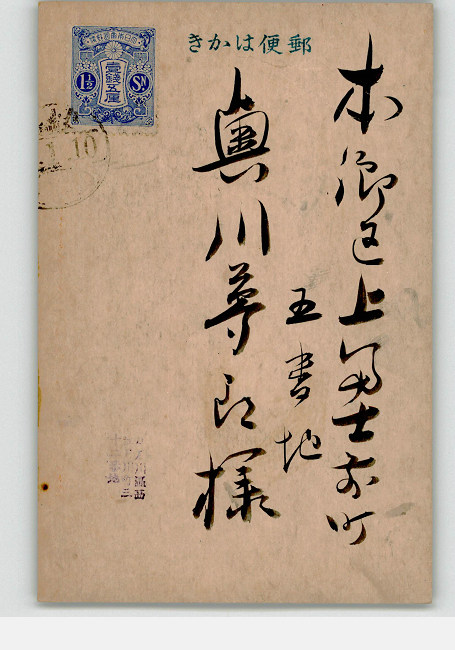 郵便はかき
大日本帝國郵便
壹錢五厘
1½ Sn
10
本郷区上富士前町
五番地
奥川尊郎様